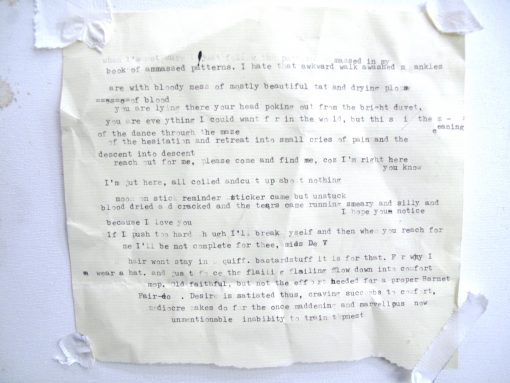 when I'm not sure, I just fall
amassed in my
book of ammassed patterns. I hate that awkward walk awashed m ankles
are with bloody mess of mostly beautiful tat and drying
of blood
you are lying there your head poking out from the bright duvet,
you are eve ything I could want f r in the wo ld, but this i the
eaning
of the dance through the maze
of the hesitation and retreat into small cries of pain and the
descent into descent
reach out for me, please come and find me, cos I'm right here
you know
I'm out here, all coiled andcu t up abo t nothing
moon on stick reminder sticker came but unstuck
blood dried a d cracked and the tears came running smeary and silly and
I hope you notice
because I love you
If I push too hard h ugh I'll break yself and then when you reach for
me I'll be not complete for thee, De V
hair wont stay in quiff. bastardstuff it is for that. F r why I
wear a hat. and jus t fo ce the flailing flow down into comfort
mop, old faithful, but not the effort needed for a proper Barnet
Fair-do . Desire is satiated thus, craving succumbs to comfort,
mediocre makes do for the once maddening and marvellous now
unmentionable inability to train